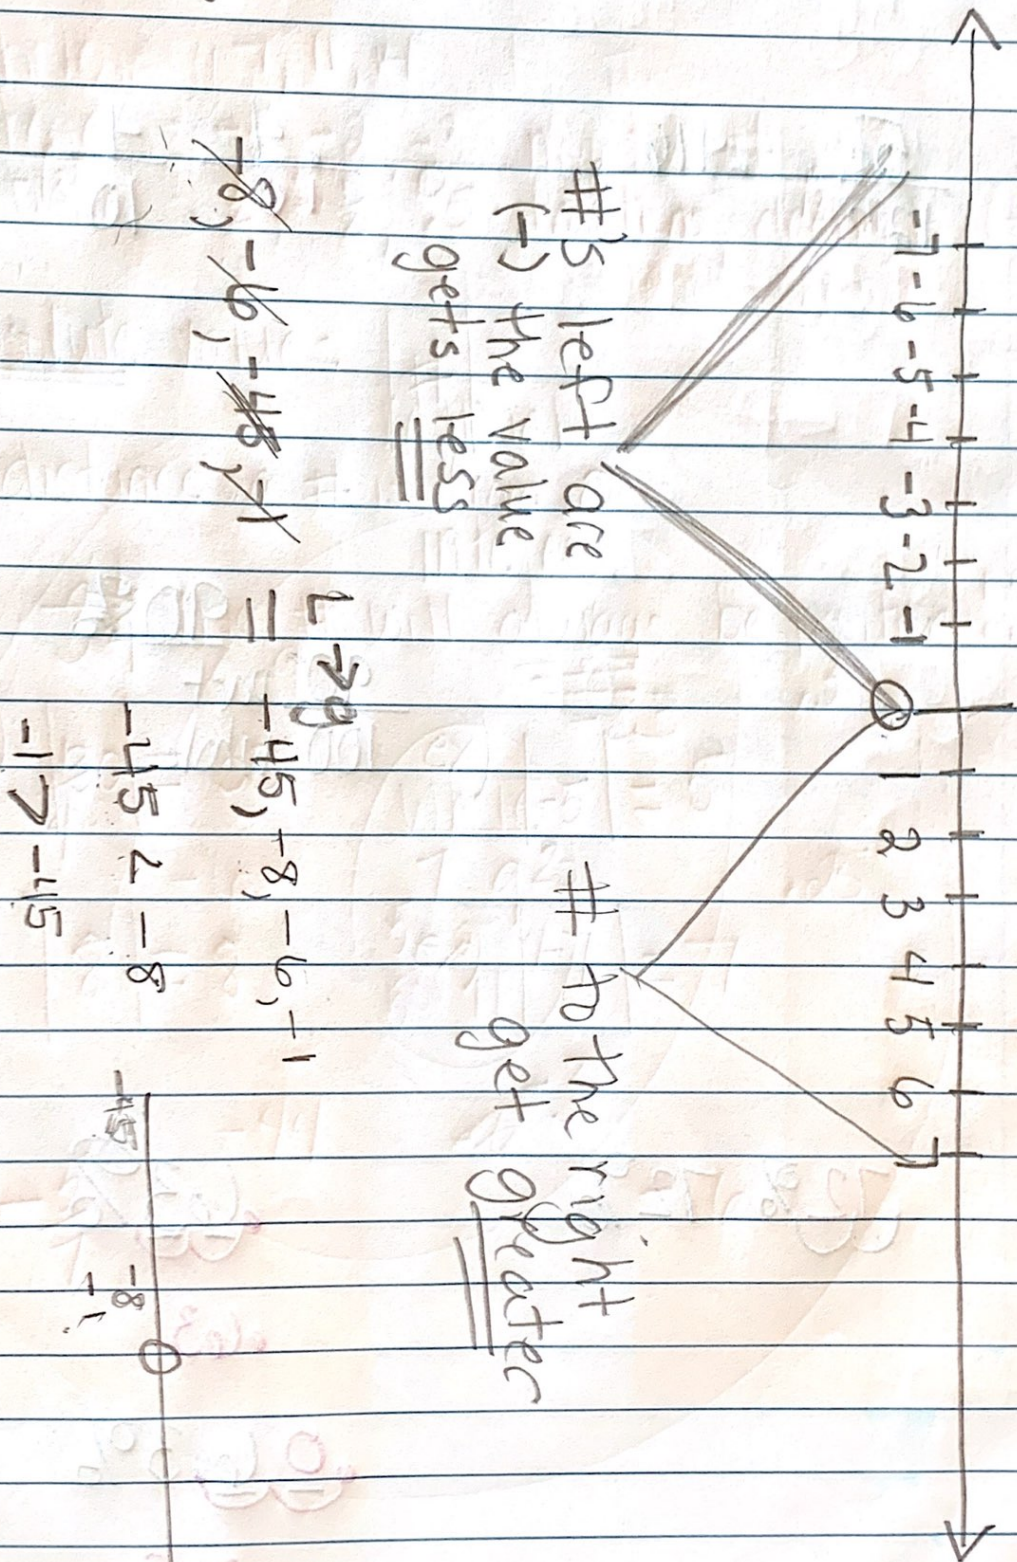 -7 -6 -5 -4 -3 -2 -1 0 1 2 3 4 5 6 7
#'s left are
(-) the value
gets less
# to the right
get greater
L → g
-8, -6, -45, -1 = -45, -8, -6, -1
-45 < -8
-1 > -45
-45 -8
-1